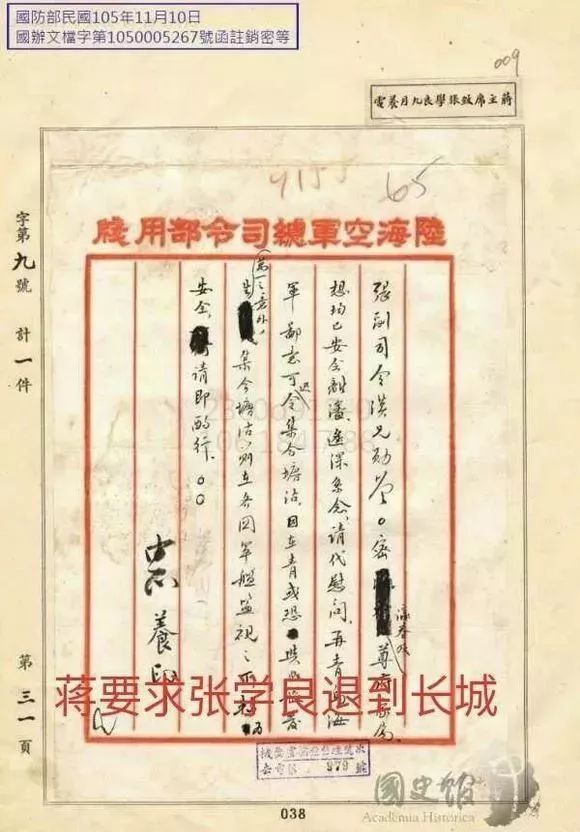 國防部民國105年11月10日
國辦文檔字第1050005267號函註銷密等
009
蔣主席致張學良九月養電
65
陸海空軍總司令部用牋
張副司令漢兄勛鑒。密 尊府家屬
想均已安全離瀋,遙深系念,請代慰問。再青島海
軍鄙意可迅令集合塘沽,因在青或恐
萬一之意外,集合塘沽則在各國軍艦監視之下
安全,請即酌行。
中正養印
字第九號 計一件 第三一頁
蒋要求张学良退到长城
979
國史館
Academia Historica
038